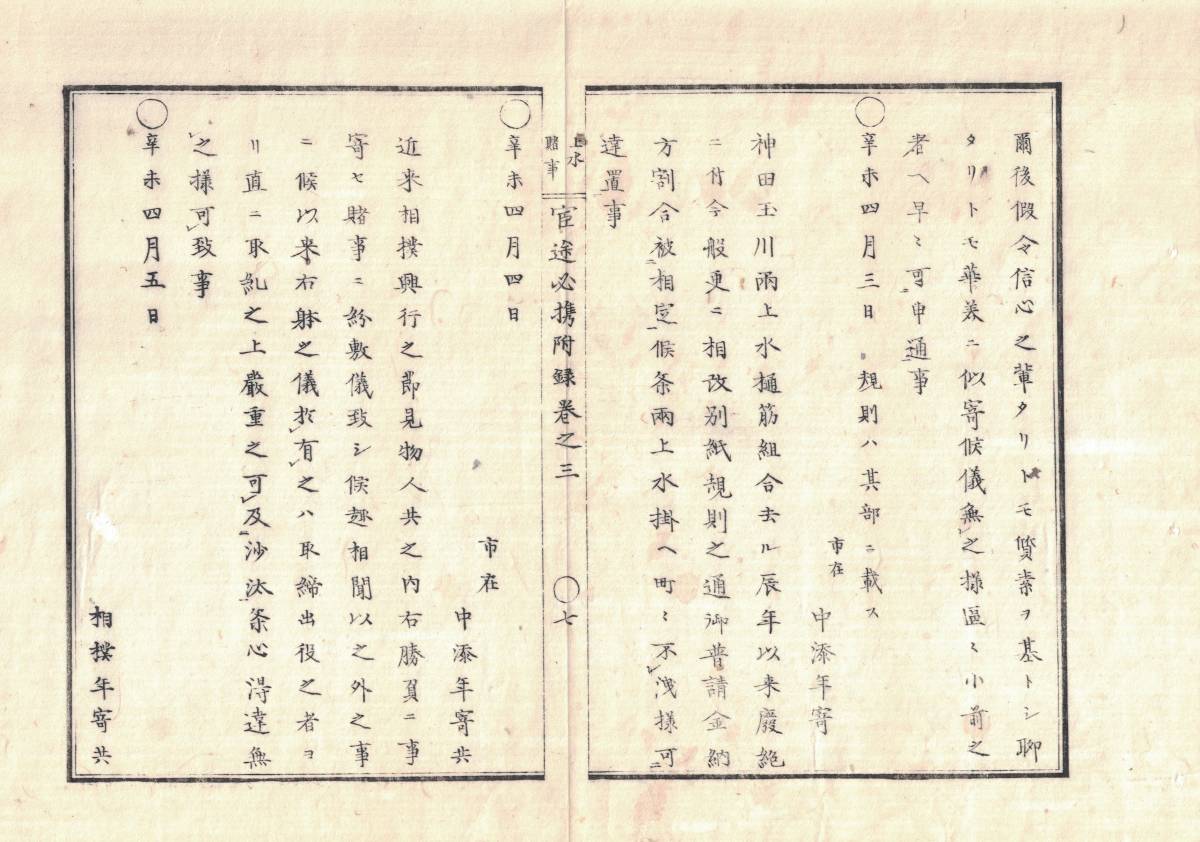 爾後假令信心之輩タリトモ質素ヲ基トシ聊
タリトモ華美ニ似寄候儀無レ之様區々小前之
者ヘ早々可レ申通事
○
辛未四月三日　規則ハ其部ニ載ス
市在
中添年寄
神田玉川両上水樋筋組合去ル辰年以来廢絶
ニ付今般更ニ相改別紙規則之通御普請金納
方割合被二相定一候条兩上水掛ヘ町々不レ洩様可二
達置一事
上水
賭事
宦途必携附録巻之三
○七
○
辛未四月四日
市在
中添年寄共
近来相撲興行之節見物人共之内右勝負ニ事
寄セ賭事ニ紛敷儀致シ候趣相聞以之外之事
ニ候以来右躰之儀於レ有レ之ハ取締出役之者ヨ
リ直ニ取糺之上嚴重之可レ及二沙汰一条心得違無
レ之様可レ致事
○
辛未四月五日
相撲年寄共